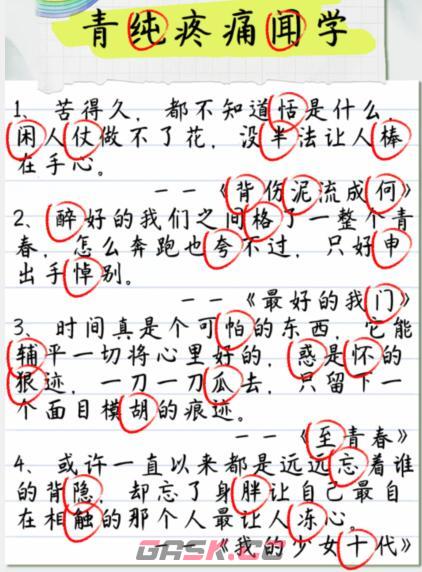 青纯疼痛闻学
1、苦得久，都不知道恬是什么，
闲人仗做不了花，没半法让人棒
在手心。
——《背伤泥流成何》
2、醉好的我们之间格了一整个青
春，怎么奔跑也夸不过，只好申
出手悼别。
——《最好的我门》
3、时间真是个可怕的东西，它能
辅平一切将心里好的，惑是怀的
狠迹，一刀一刀瓜去，只留下一
个面目模胡的痕迹。
——《至青春》
4、或许一直以来都是远远忘着谁
的背隐，却忘了身胖让自己最自
在相触的那个人最让人冻心。
——《我的少女十代》
GASK.CO